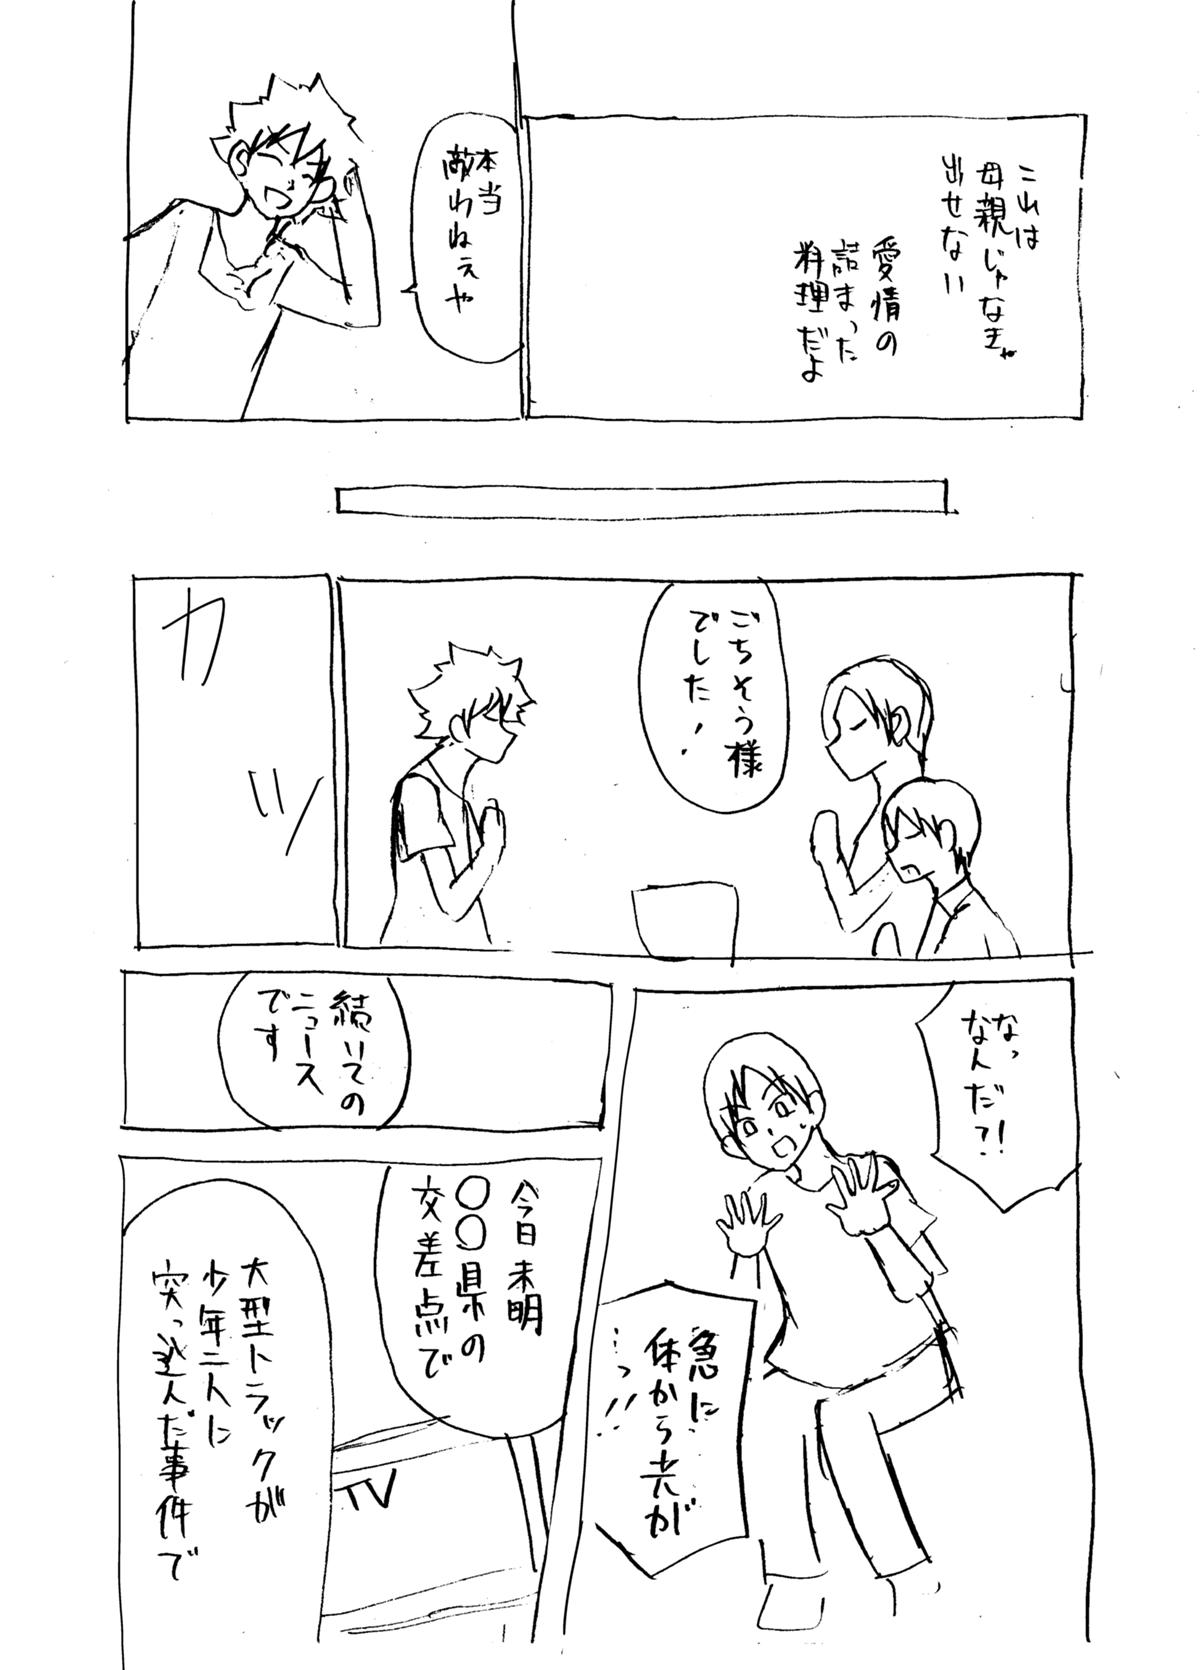 これは
母親じゃなきゃ
出せない
愛情の
詰まった
料理だよ
本当
敵わねぇや
ごちそう様
でした！
カッ
なっ
なんだ?!
急に
体から光が
…っ!!
続いての
ニュース
です
今日未明
○○県の
交差点で
TV
大型トラックが
少年二人に
突っ込んだ事件で